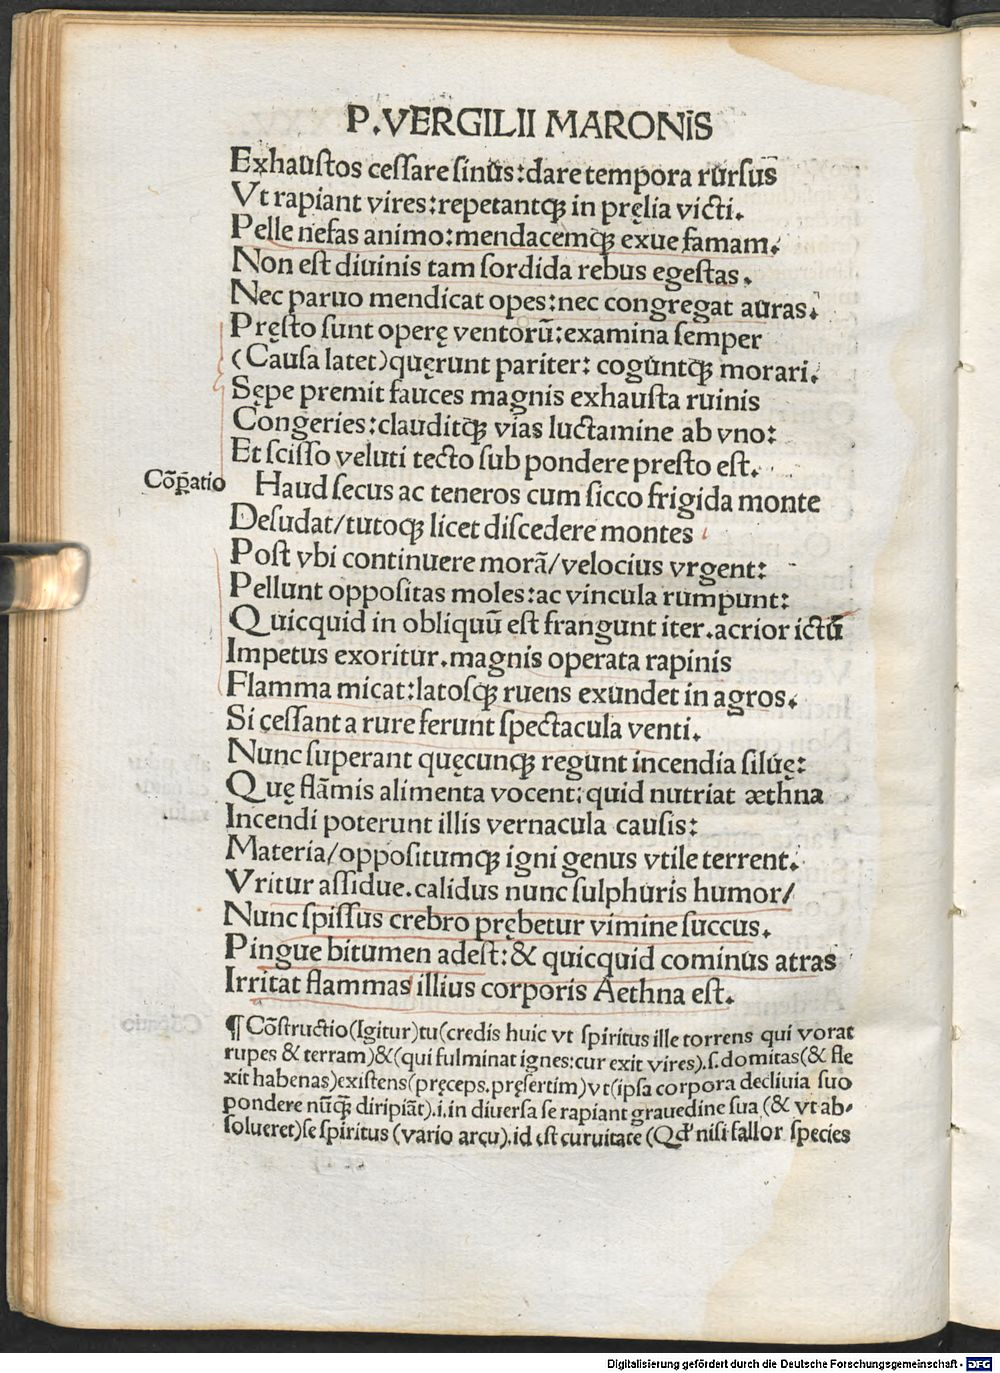 P.VERGILII MARONIS
Exhaustos cessare sinus:dare tempora rursus
Vt rapiant vires:repetantqꝫ in pręlia victi.
Pelle nefas animo:mendacemqꝫ exue famam.
Non est diuinis tam sordida rebus egestas.
Nec paruo mendicat opes:nec congregat auras.
Pręsto sunt operę ventorū:examina semper
(Causa latet)quęrunt pariter: coguntqꝫ morari.
Sępe premit fauces magnis exhausta ruinis
Congeries:clauditqꝫ vias luctamine ab vno:
Et scisso veluti tecto sub pondere presto est.
Cōꝑatio
Haud secus ac teneros cum sicco frigida monte
Desudat/tutoqꝫ licet discedere montes
Post vbi continuere morā/velocius vrgent:
Pellunt oppositas moles:ac vincula rumpunt:
Quicquid in obliquū est frangunt iter.acrior ictū
Impetus exoritur.magnis operata rapinis
Flamma micat:latosqꝫ ruens exundet in agros.
Si cessant a rure ferunt spectacula venti.
Nunc superant quęcunqꝫ regunt incendia siluę:
Quę flāmis alimenta vocent:quid nutriat æthna
Incendi poterunt illis vernacula causis:
Materia/oppositumqꝫ igni genus vtile terrent.
Vritur assidue.calidus nunc sulphuris humor/
Nunc spissus crebro prębetur vimine succus.
Pingue bitumen adest:& quicquid cominus atras
Irritat flammas illius corporis Aethna est.
¶ Cōstructio(Igitur)tu(credis huic vt spiritus ille torrens qui vorat
rupes & terram)&(qui fulminat ignes:cur exit vires).s.domitas(& fle
xit habenas)existens(pręceps.pręsertim)vt(ipsa corpora decliuia suo
pondere nūqꝫ diripiāt).i.in diuersa se rapiant grauedine sua (& vt ab⸗
solueret)se spiritus (vario arcu).id est curuitate (Qd' nisi fallor species
Digitalisierung gefördert durch die Deutsche Forschungsgemeinschaft - DFG